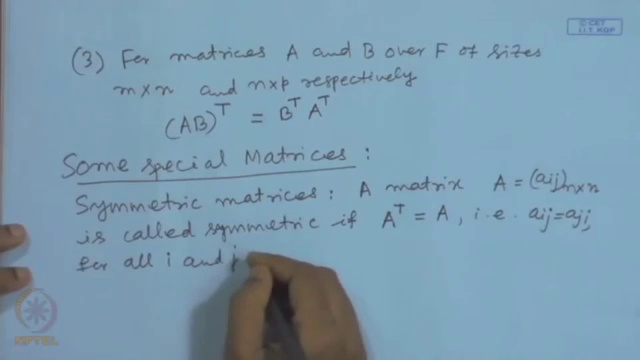 © CET
I.I.T. KGP
(3) For matrices A and B over F of sizes
m×n and n×p respectively
(AB)^T = B^T A^T
Some special Matrices :
Symmetric matrices : A matrix A = (aij)n×n
is called symmetric if A^T = A, i.e. aij=ajj,
for all i and j
NPTEL